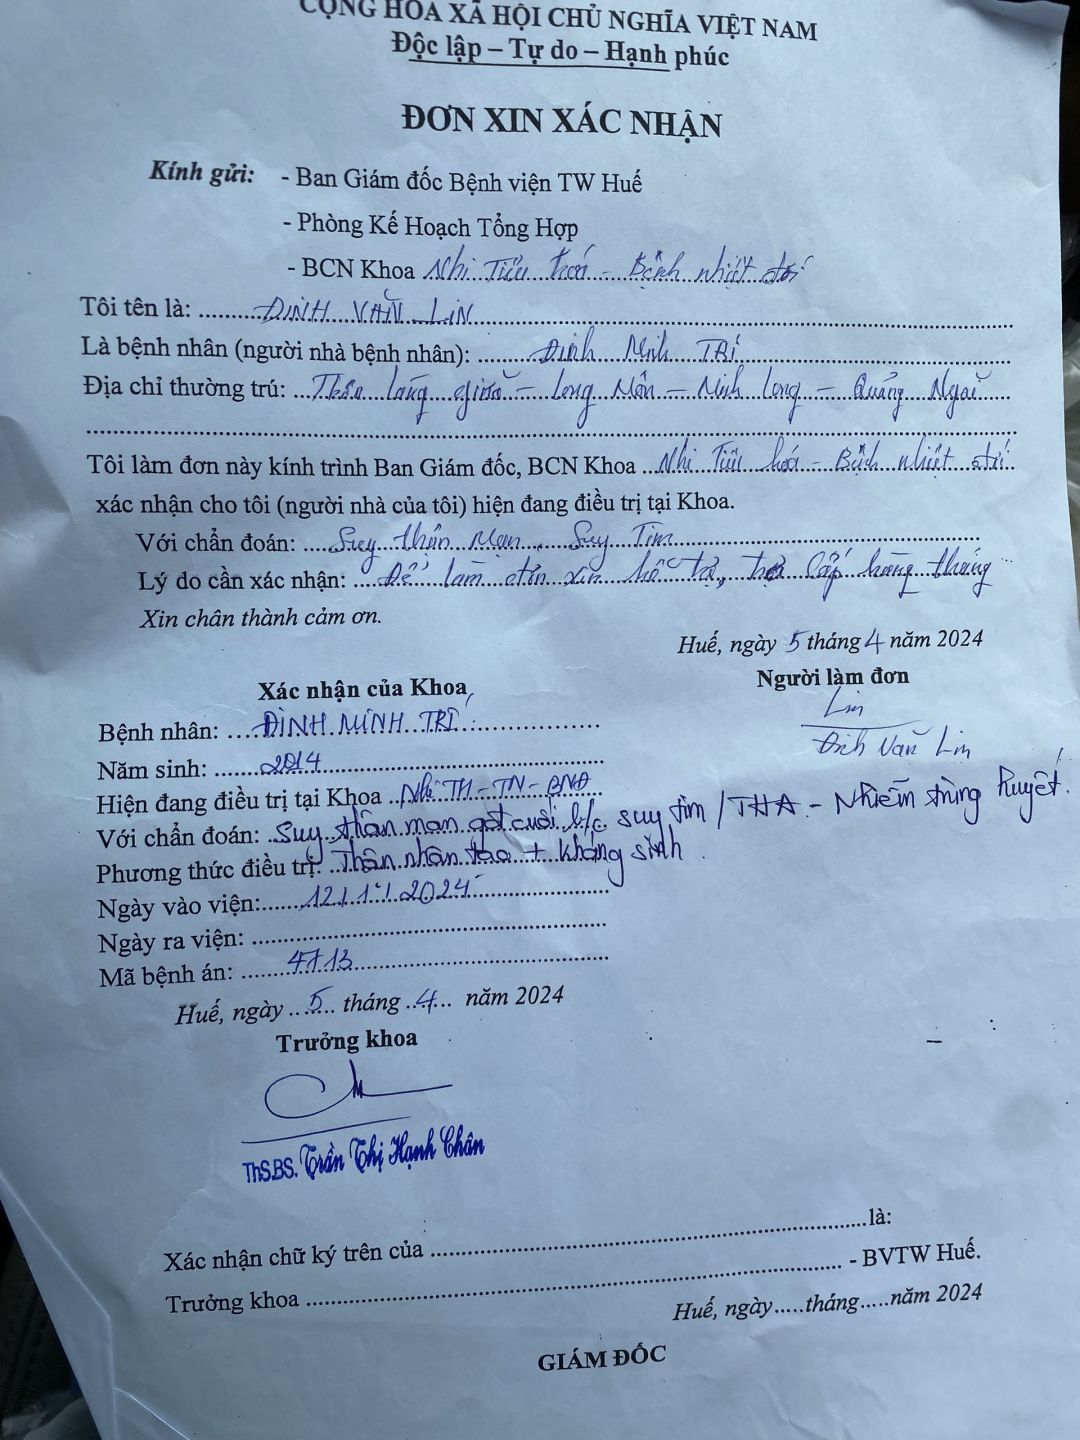 CỘNG HÒA XÃ HỘI CHỦ NGHĨA VIỆT NAM
Độc lập – Tự do – Hạnh phúc
ĐƠN XIN XÁC NHẬN
Kính gửi: - Ban Giám đốc Bệnh viện TW Huế
- Phòng Kế Hoạch Tổng Hợp
- BCN Khoa Nhi Tiêu hoá - Bệnh nhiệt đới
Tôi tên là: ĐINH VĂN LIN
Là bệnh nhân (người nhà bệnh nhân): Đinh Minh TRÍ
Địa chỉ thường trú: Thôn làng giữa - Long Môn - Minh Long - Quảng Ngãi
Tôi làm đơn này kính trình Ban Giám đốc, BCN Khoa Nhi Tiêu hoá - Bệnh nhiệt đới
xác nhận cho tôi (người nhà của tôi) hiện đang điều trị tại Khoa.
Với chẩn đoán: Suy thận Mạn, Suy Tim
Lý do cần xác nhận: Để làm đơn xin hỗ trợ, trợ Cấp hàng tháng
Xin chân thành cảm ơn.
Huế, ngày 5 tháng 4 năm 2024
Xác nhận của Khoa Người làm đơn
Lin
Bệnh nhân: ĐINH MINH TRÍ
Đinh Văn Lin
Năm sinh: 2014
Hiện đang điều trị tại Khoa Nhi TH-TN-BNĐ
Với chẩn đoán: Suy thận mạn gđ cuối b/c suy tim / THA - Nhiễm trùng huyết.
Phương thức điều trị: Thận nhân tạo + kháng sinh.
Ngày vào viện: 12/1/2024
Ngày ra viện:
Mã bệnh án: 4713
Huế, ngày 5 tháng 4 năm 2024
Trưởng khoa
ThS.BS. Trần Thị Hạnh Chân
Xác nhận chữ ký trên của là:
Trưởng khoa - BVTW Huế.
Huế, ngày.....tháng.....năm 2024
GIÁM ĐỐC